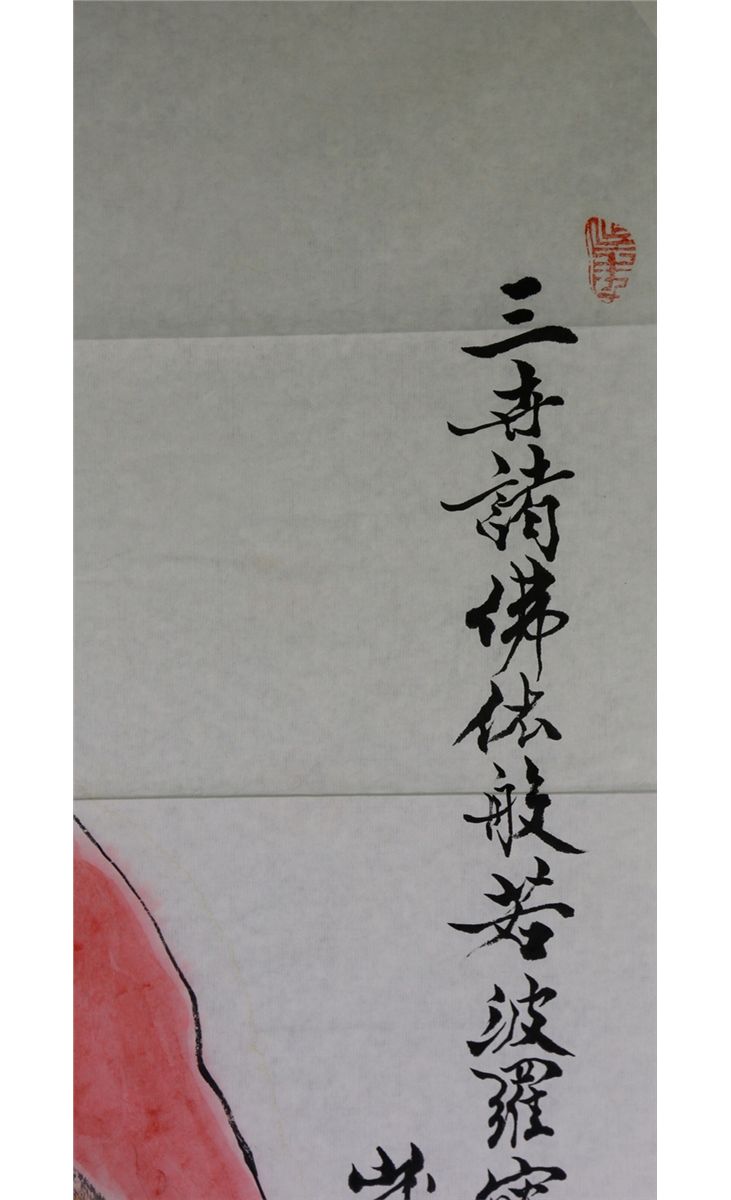 三世諸佛依般若波羅